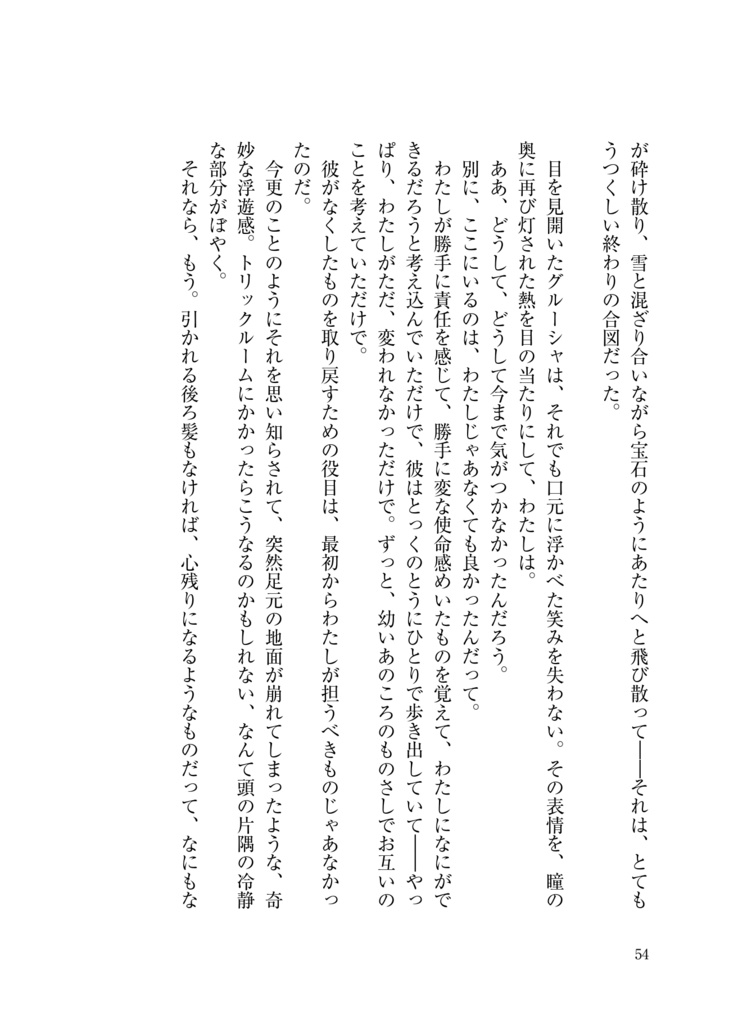 が砕け散り、雪と混ざり合いながら宝石のようにあたりへと飛び散って――それは、とても
うつくしい終わりの合図だった。
目を見開いたグルーシャは、それでも口元に浮かべた笑みを失わない。その表情を、瞳の
奥に再び灯された熱を目の当たりにして、わたしは。
ああ、どうして、どうして今まで気がつかなかったんだろう。
別に、ここにいるのは、わたしじゃあなくても良かったんだって。
わたしが勝手に責任を感じて、勝手に変な使命感めいたものを覚えて、わたしになにがで
きるだろうと考え込んでいただけで、彼はとっくのとうにひとりで歩き出していて――やっ
ぱり、わたしがただ、変われなかっただけで。ずっと、幼いあのころのものさしでお互いの
ことを考えていただけで。
彼がなくしたものを取り戻すための役目は、最初からわたしが担うべきものじゃあなかっ
たのだ。
今更のことのようにそれを思い知らされて、突然足元の地面が崩れてしまったような、奇
妙な浮遊感。トリックルームにかかったらこうなるのかもしれない、なんて頭の片隅の冷静
な部分がぼやく。
それなら、もう。引かれる後ろ髪もなければ、心残りになるようなものだって、なにもな
54